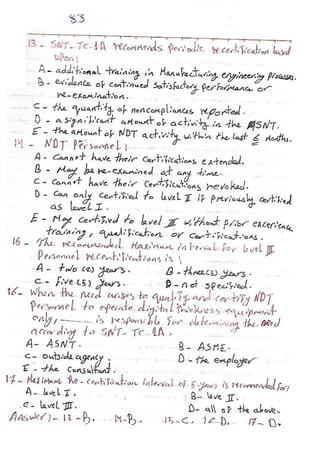 83
13 - SNT-TC-1A recommends Periodic recertification based
upon:
A - additional training in Manufacturing engineering processes.
B - evidence of continued satisfactory performance or
re-examination.
C - the quantity of noncompliances reported.
D - a significant amount of activity in the ASNT.
E - the amount of NDT activity within the last 6 months.
14 - NDT Personnel:
A - Cannot have their certifications extended.
B - May be re-examined at any time.
C - cannot have their certifications revoked.
D - Can only certified to level II if previously certified
as level I.
E - May certified to level III without prior experience
training, qualification or certifications.
15 - The recommended Maximum interval for level III
Personnel recertifications is:
A - two (2) years. B - three (3) years.
C - five (5) years. D - not specified.
16 - when the need arises to qualify and certify NDT
Personnel to operate digital thickness equipment
only, ______ is responsible for determining the need
according to SNT-TC-1A.
A - ASNT. B - ASME.
C - outside agency. D - the employer
E - the consultant.
17 - Maximum Re-certification interval of 5-years is recommended for:
A - level I. B - leve II.
C - level III. D - all of the above.
Answer) - 13 - B. 14 - B. 15 - C. 16 - D. 17 - D.